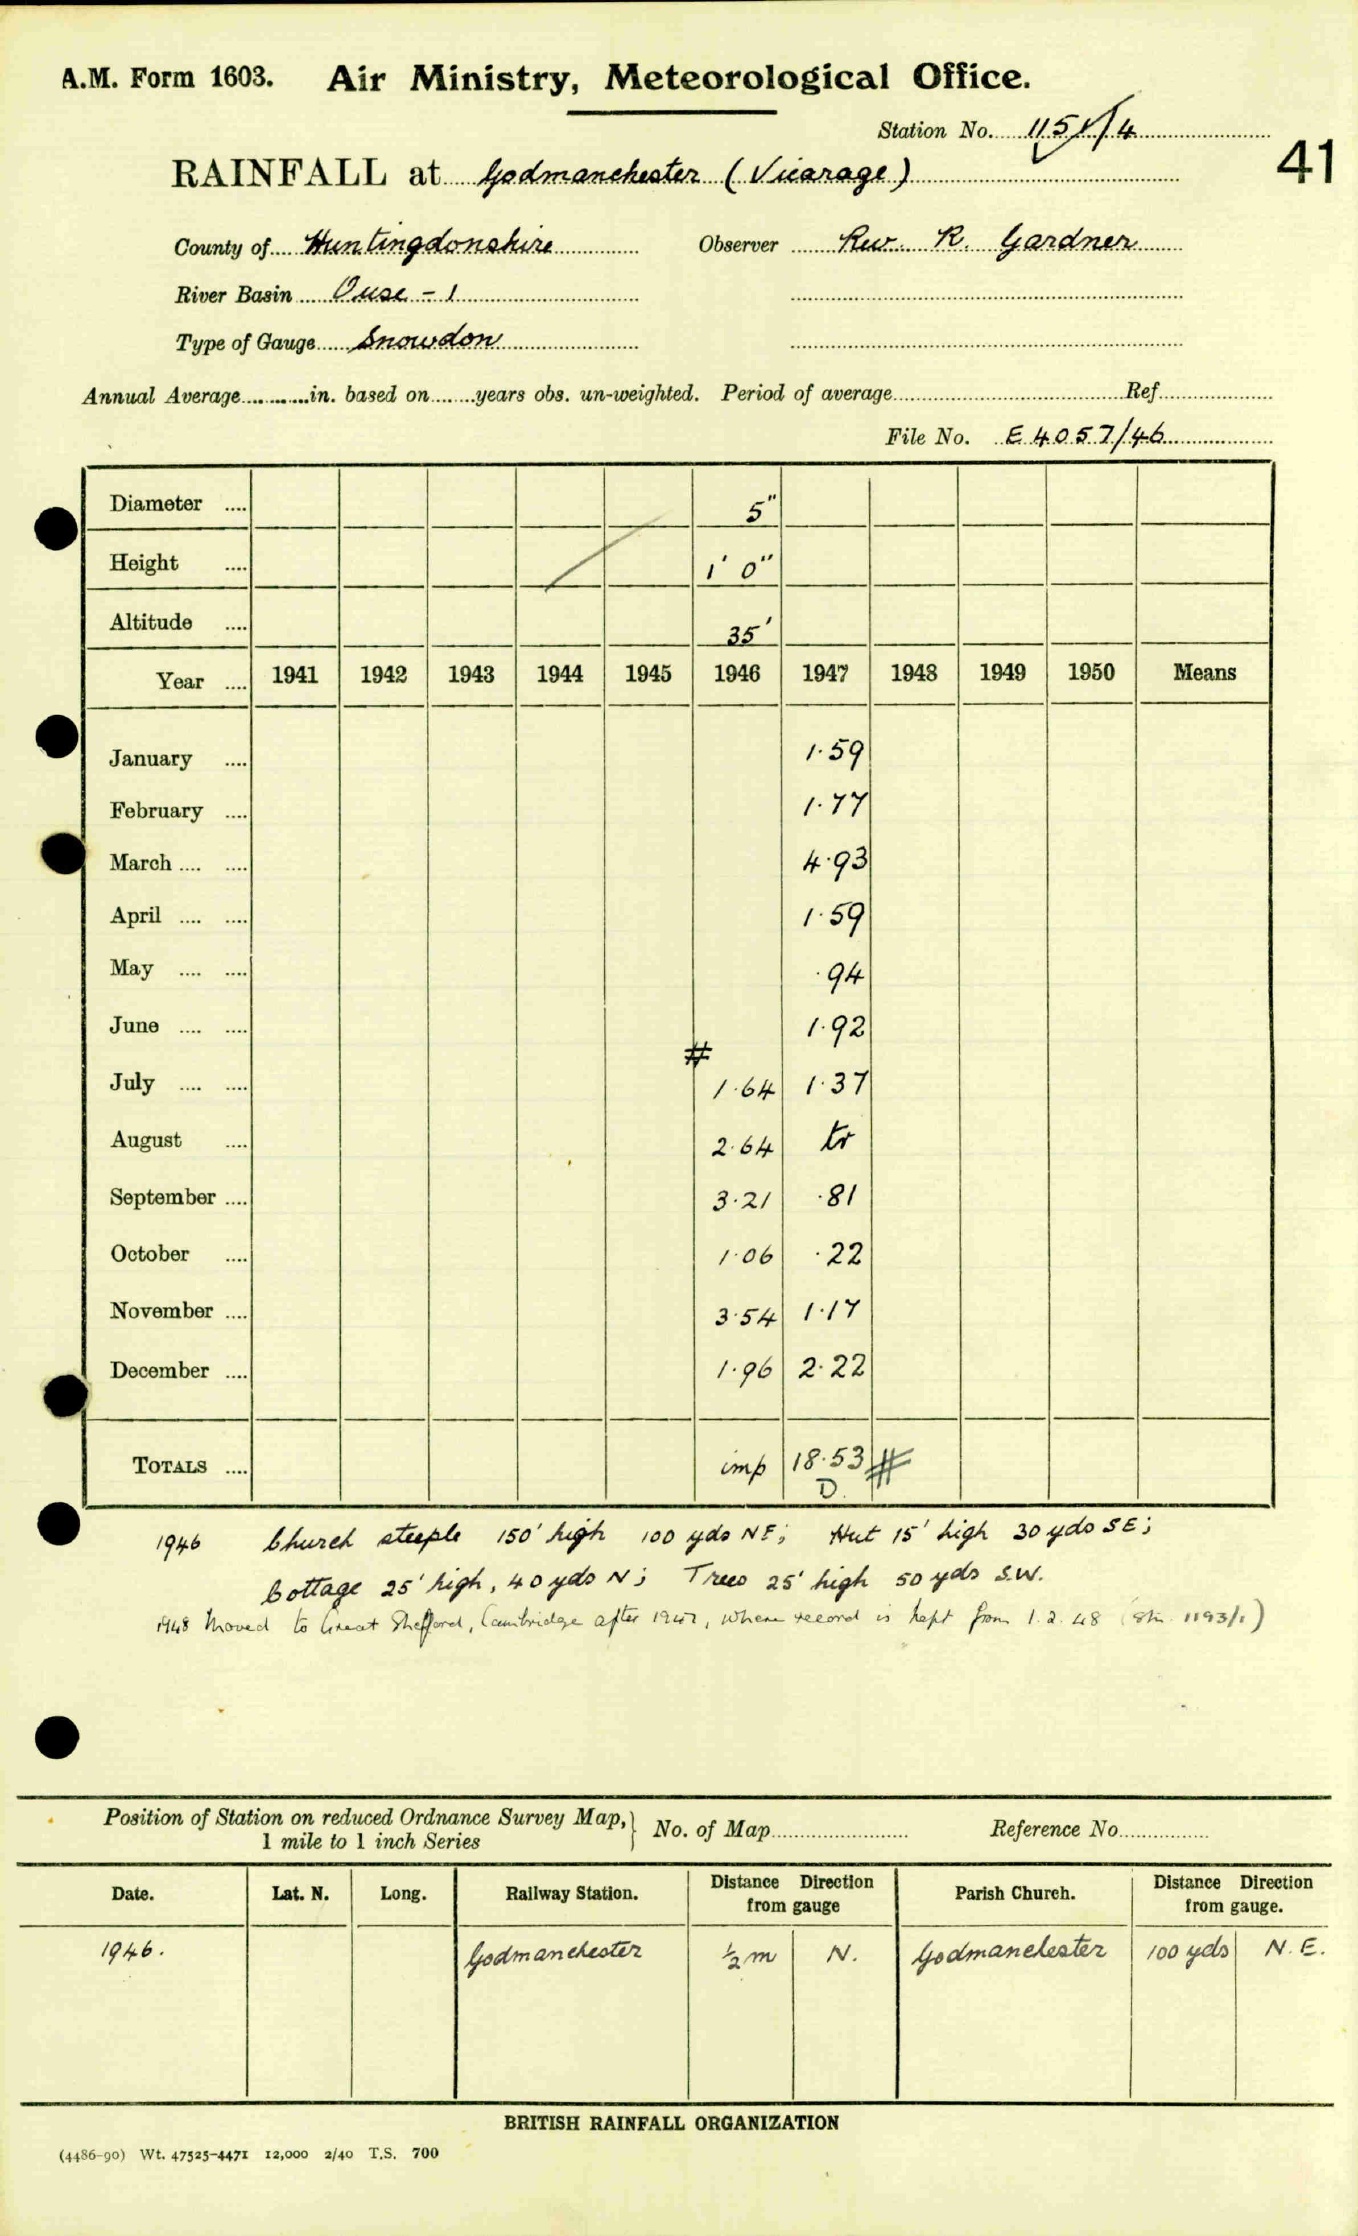 A.M. Form 1603. Air Ministry, Meteorological Office.
Station No. 1151/4
41
RAINFALL at Godmanchester (Vicarage)
County of Huntingdonshire Observer Rev. R. Gardner
River Basin Ouse - 1
Type of Gauge Snowdon
Annual Average............in. based on........years obs. un-weighted. Period of average.................... Ref....................
File No. E 4057/46
Diameter .... 5"
Height .... 1' 0"
Altitude .... 35'
Year .... 1941 1942 1943 1944 1945 1946 1947 1948 1949 1950 Means
January .... 1·59
February .... 1·77
March .... .... 4·93
April .... .... 1·59
May .... .... ·94
June .... .... 1·92
#
July .... .... 1·64 1·37
August .... 2·64 tr
September .... 3·21 ·81
October .... 1·06 ·22
November .... 3·54 1·17
December .... 1·96 2·22
TOTALS .... imp 18·53 #
D.
1946 Church steeple 150' high 100 yds NE; Hut 15' high 30 yds SE;
Cottage 25' high, 40 yds N; Trees 25' high 50 yds S.W.
1948 Moved to Great Shelford, Cambridge after 1947, where record is kept from 1.2.48 (Stn. 1193/1)
Position of Station on reduced Ordnance Survey Map,} No. of Map........................ Reference No................
1 mile to 1 inch Series
Date. Lat. N. Long. Railway Station. Distance Direction from gauge Parish Church. Distance Direction from gauge.
1946. Godmanchester ½ m N. Godmanchester 100 yds N.E.
BRITISH RAINFALL ORGANIZATION
(4486-90) Wt. 47525-4471 12,000 2/40 T.S. 700